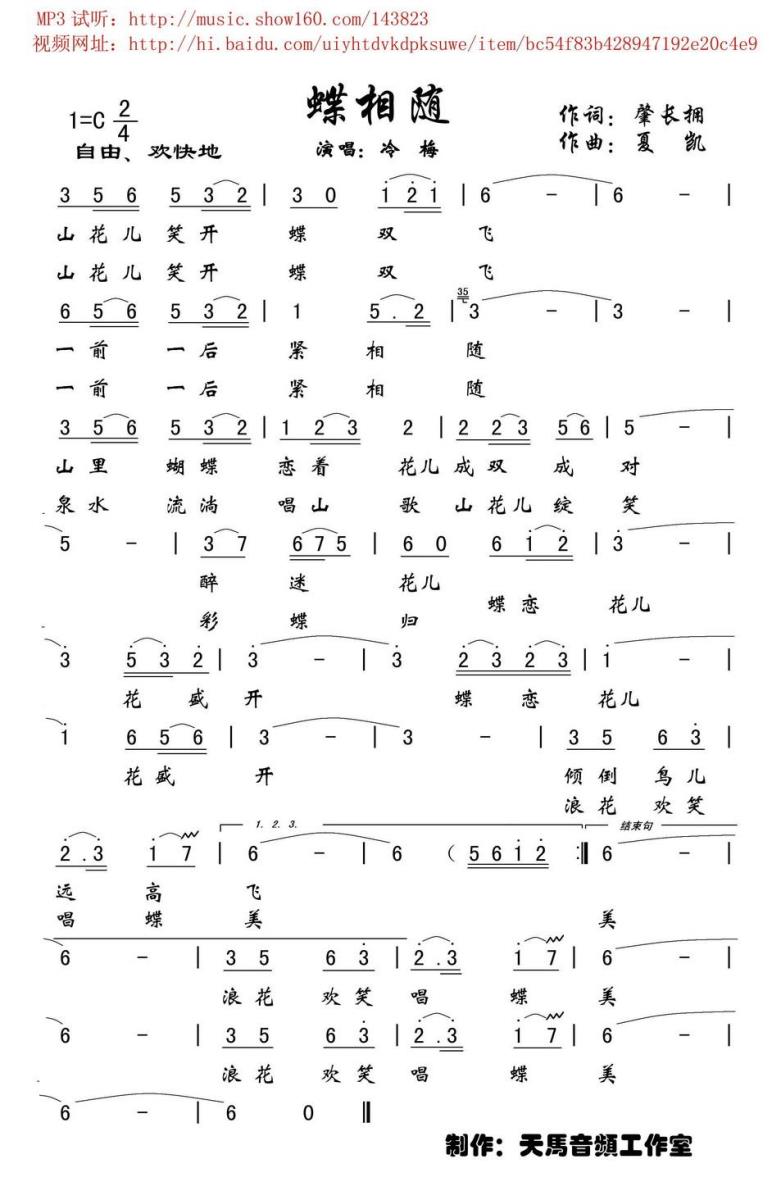 MP3 试听：http://music.show160.com/143823
视频网址：http://hi.baidu.com/uiyhtdvkdpksuwe/item/bc54f83b428947192e20c4e9
蝶相随
1=C 2/4
作词：肇长拥
作曲：夏 凯
自由、欢快地
演唱：冷 梅
3 5 6 5 3 2 | 3 0 1 2 1 | 6 - | 6 - |
山花儿笑开 蝶 双 飞
山花儿笑开 蝶 双 飞
6 5 6 5 3 2 | 1 5 . 2 | 35 3 - | 3 - |
一前 一后 紧 相 随
一前 一后 紧 相 随
3 5 6 5 3 2 | 1 2 3 2 | 2 2 3 5 6 | 5 - |
山里 蝴蝶 恋着 花儿成双 成 对
泉水 流淌 唱山 歌 山花儿绽 笑
5 - | 3 7 6 7 5 | 6 0 6 1 2 | 3 - |
醉 迷 花儿 蝶恋 花儿
彩 蝶 归
3 5 3 2 | 3 - | 3 2 3 2 3 | 1 - |
花 盛 开 蝶 恋 花儿
1 6 5 6 | 3 - | 3 - | 3 5 6 3 |
花盛 开 倾倒 鸟儿
浪花 欢笑
1. 2. 3. 结束句
2 . 3 1 7 | 6 - | 6 （ 5 6 1 2 :‖ 6 - |
远 高 飞
唱 蝶 美 美
6 - | 3 5 6 3 | 2 . 3 1 7 | 6 - |
浪花 欢笑 唱 蝶 美
6 - | 3 5 6 3 | 2 . 3 1 7 | 6 - |
浪花 欢笑 唱 蝶 美
6 - | 6 0 ‖
制作：天馬音頻工作室